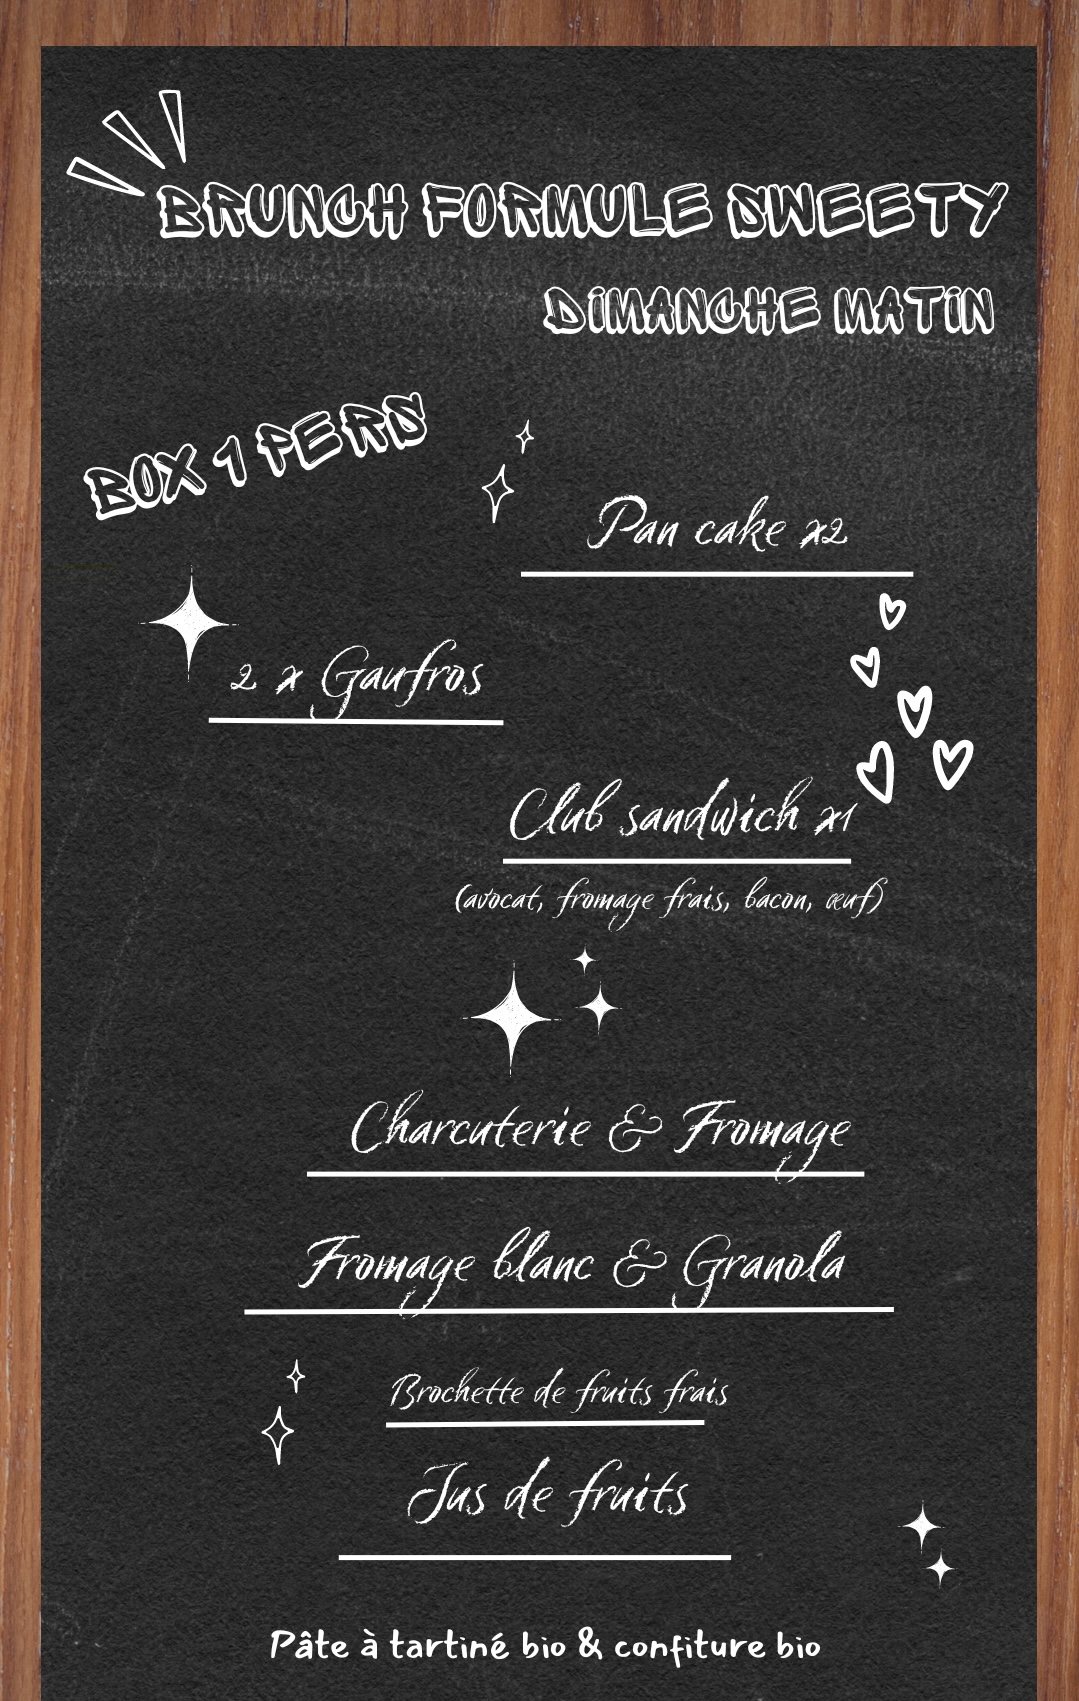 BRUNCH FORMULE SWEETY
DIMANCHE MATIN
BOX 1 PERS
Pan cake x2
2 x Gaufros
Club sandwich x1
(avocat, fromage frais, bacon, œuf)
Charcuterie & Fromage
Fromage blanc & Granola
Brochette de fruits frais
Jus de fruits
Pâte à tartiné bio & confiture bio